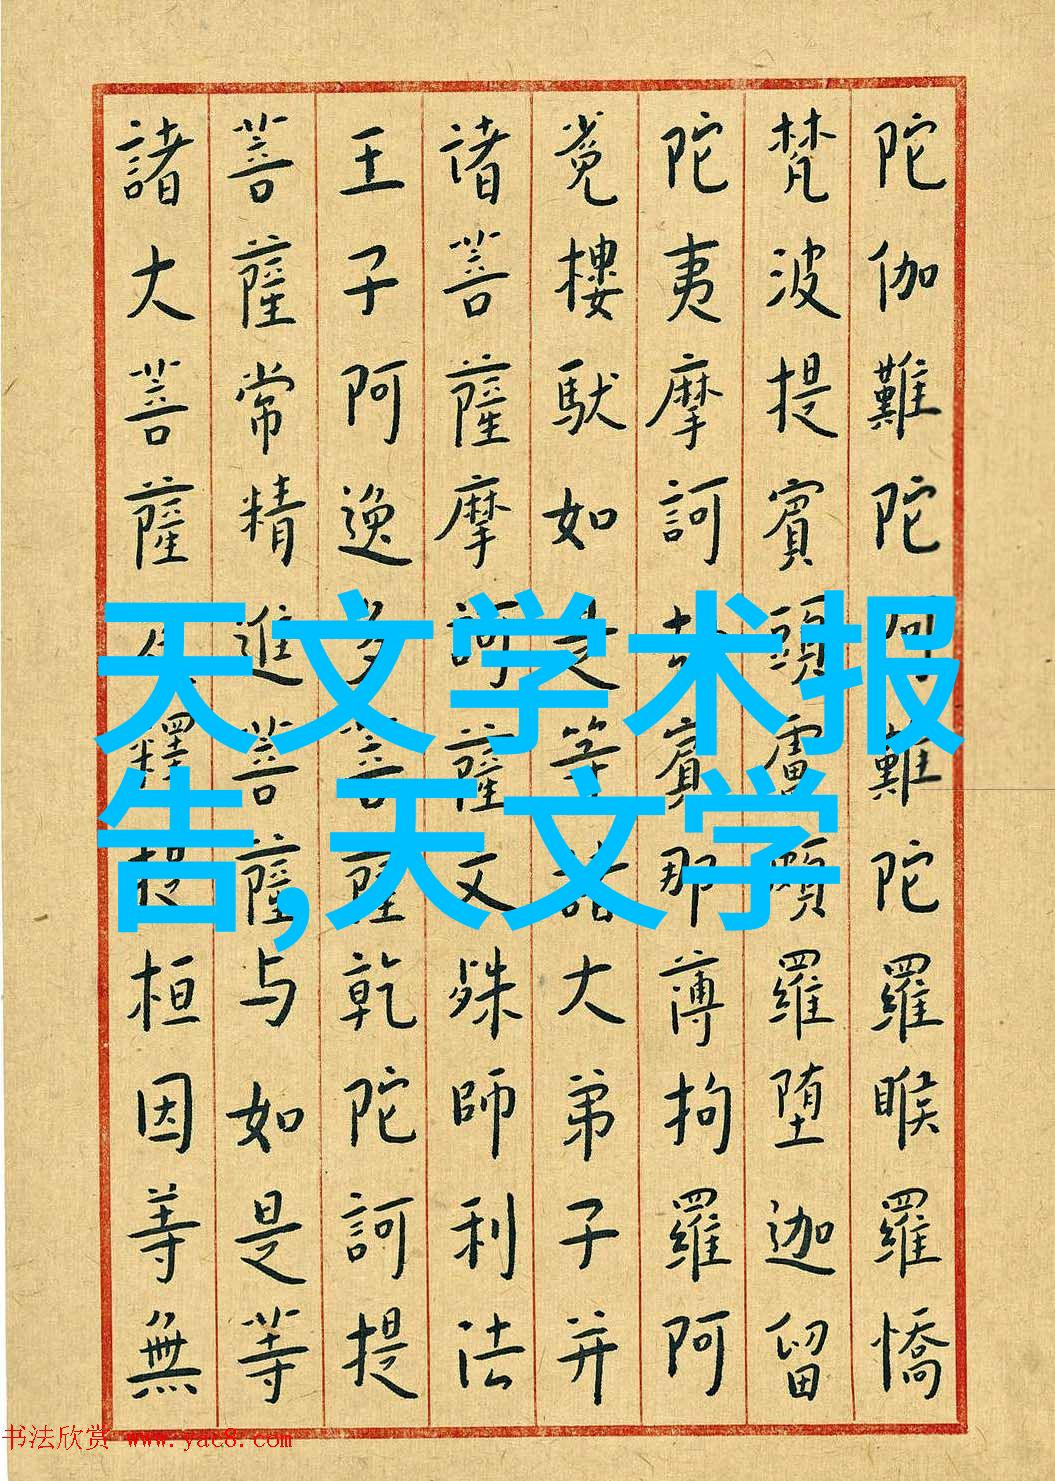 陀伽難陀難陀羅睺羅憍
梵波提賓頭盧頗羅堕迦留
陀夷摩訶賓那薄拘羅阿
樓馱如是等諸大弟子并
诸菩薩摩訶薩文殊師利法
王子阿逸多菩薩乾陀訶提
菩薩常精進菩薩与如是等
諸大菩薩釋提桓因等無
天文学术报
告,天文学
书法欣赏 www.yac8.com